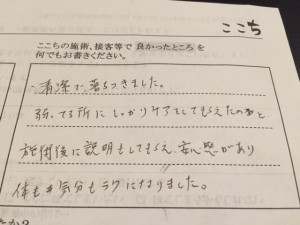 ここち
ここちの施術、接客等で良かったところを
何でもお書きください。
清潔で落ちつきました。
弱ってる所にしっかりケアをしてもらえたのと
施術後に説明もしてもらえ、安心感があり
体も気分もラクになりました。